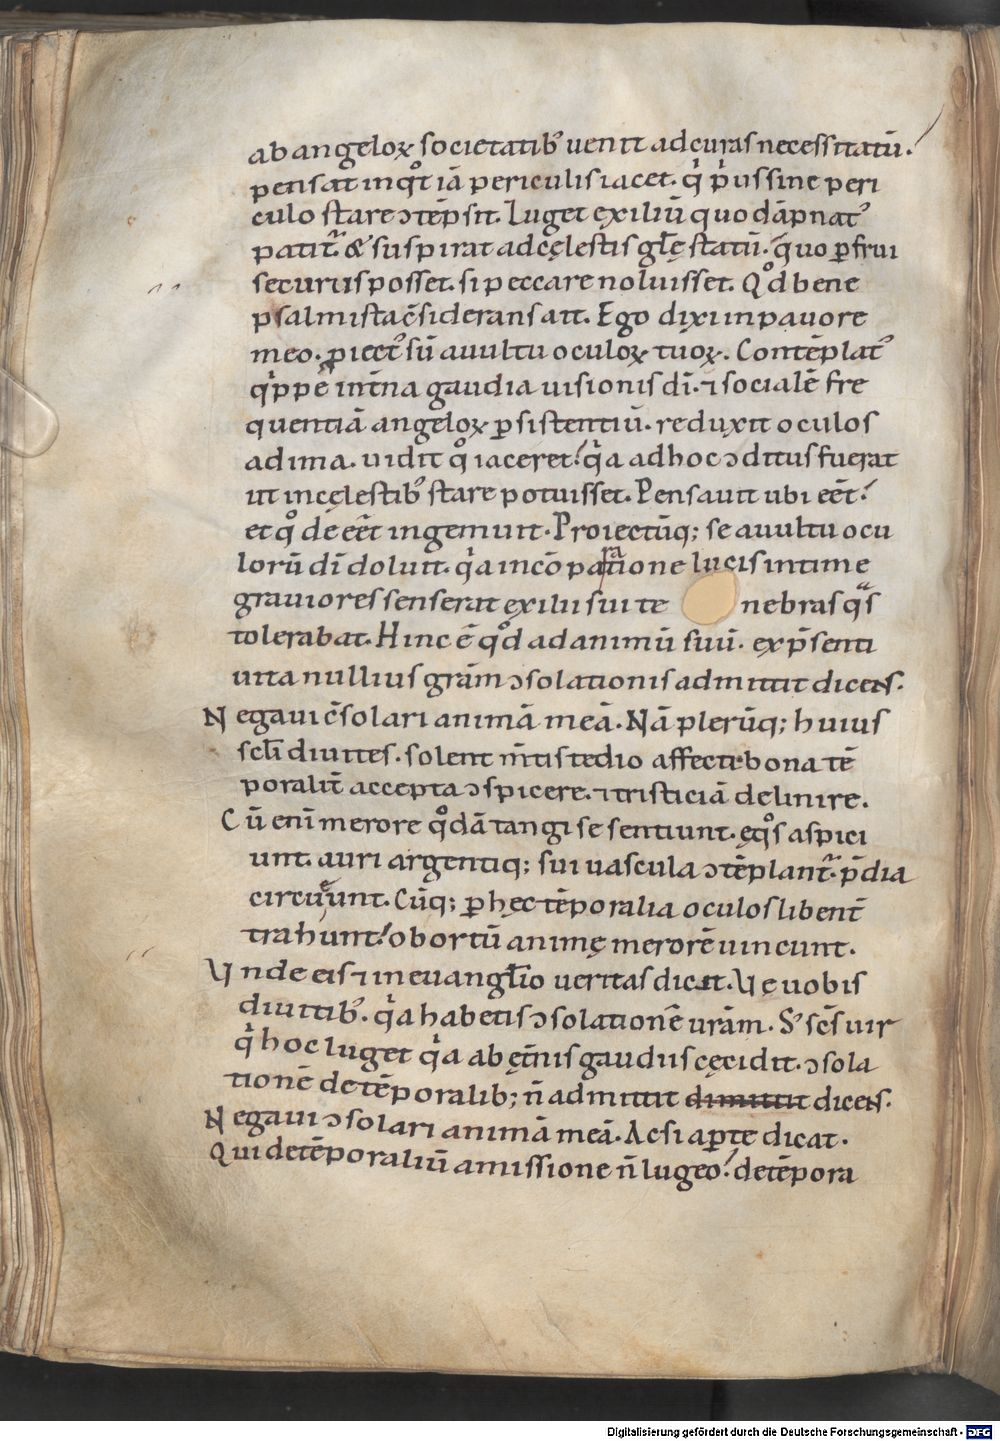 ab angeloꝝ societatibꝰ uenit ad curas necessitatū.
pensat inqͦt iā periculis iacet. qͥ pͥus sine peri
culo stare ↄtēpsit. Luget exiliū quo dāpnatꝰ
patit᷑. & suspirat ad cęlestis gl̄ę statū. quo ꝑfrui
securius posset. si peccare noluisset. Qͦd bene
psalmista c̄siderans ait. Ego dixi in pauore
meo. ꝓiectꝰ sū a uultu oculoꝝ tuoꝝ. Contēplatꝰ
qͥppe int̄na gaudia uisionis dī. ⁊ socialē fre
quentiā angeloꝝ ꝑsistentiū. reduxit oculos
ad ima. uidit qͦ iaceret! qͥa ad hoc ↄditus fuerat
ut in cęlestibꝰ stare potuisset. Pensauit ubi eēt!
et qͦ deeēt ingemuit. Proiectūq; se a uultu ocu
lorū dī doluit. qͥa in cōparatione lucis intime
grauiores senserat exilii sui te nebras qͣs
tolerabat. Hinc ē qͦd ad animū suū. ex p̄senti
uita nullius grām ↄsolationis admittit dicens.
Negaui c̄solari animā meā. Nā plerūq; huius
scl̄i diuites. solent m̄tis tedio affecti bona tē
poraliū accepta ↄspicere. ⁊ tristiciā delinire.
Cū enī merore qͦdā tangi se sentiunt. eqͦs aspici
unt. auri argentiq; sui uascula ↄtēplant᷑. p̄dia
circueunt. Cūq; ꝑ hęc tēporalia oculos libent̄
trahunt! obortū animę merorē uincunt.
Unde eis ⁊ in euangl̄io ueritas dicit. Uę uobis
diuitibꝰ. qͥa habetis ↄsolationē urām. Sꝰ scs̄ uir
qͥ hoc luget qͥa ab ęt̄nis gaudiis cęcidit. ↄsola
tionē de tēporalib; n̄ admittit dimittit dicens.
Negaui ↄsolari animā meā. Ac si aꝑte dicat.
Qui de tēporaliū amissione n̄ lugeo! de tēpora
Digitalisierung gefördert durch die Deutsche Forschungsgemeinschaft - DFG